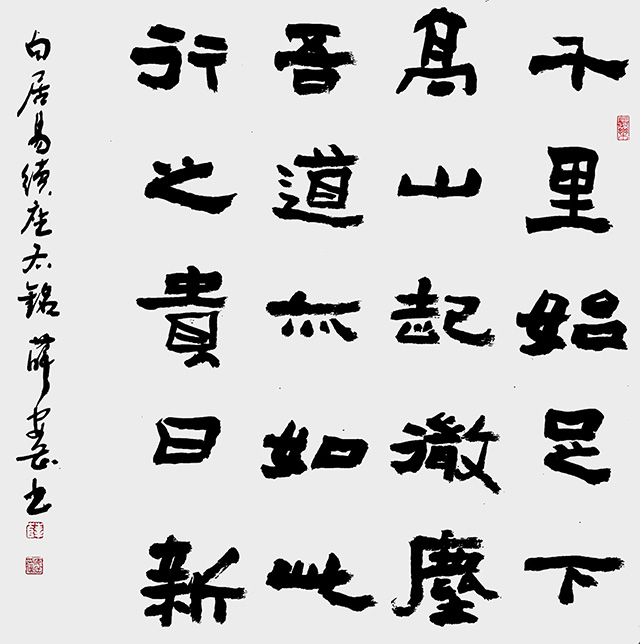 千里始足下
髙山起微塵
吾道亦如此
行之貴日新
白居易續座右銘 薛 书